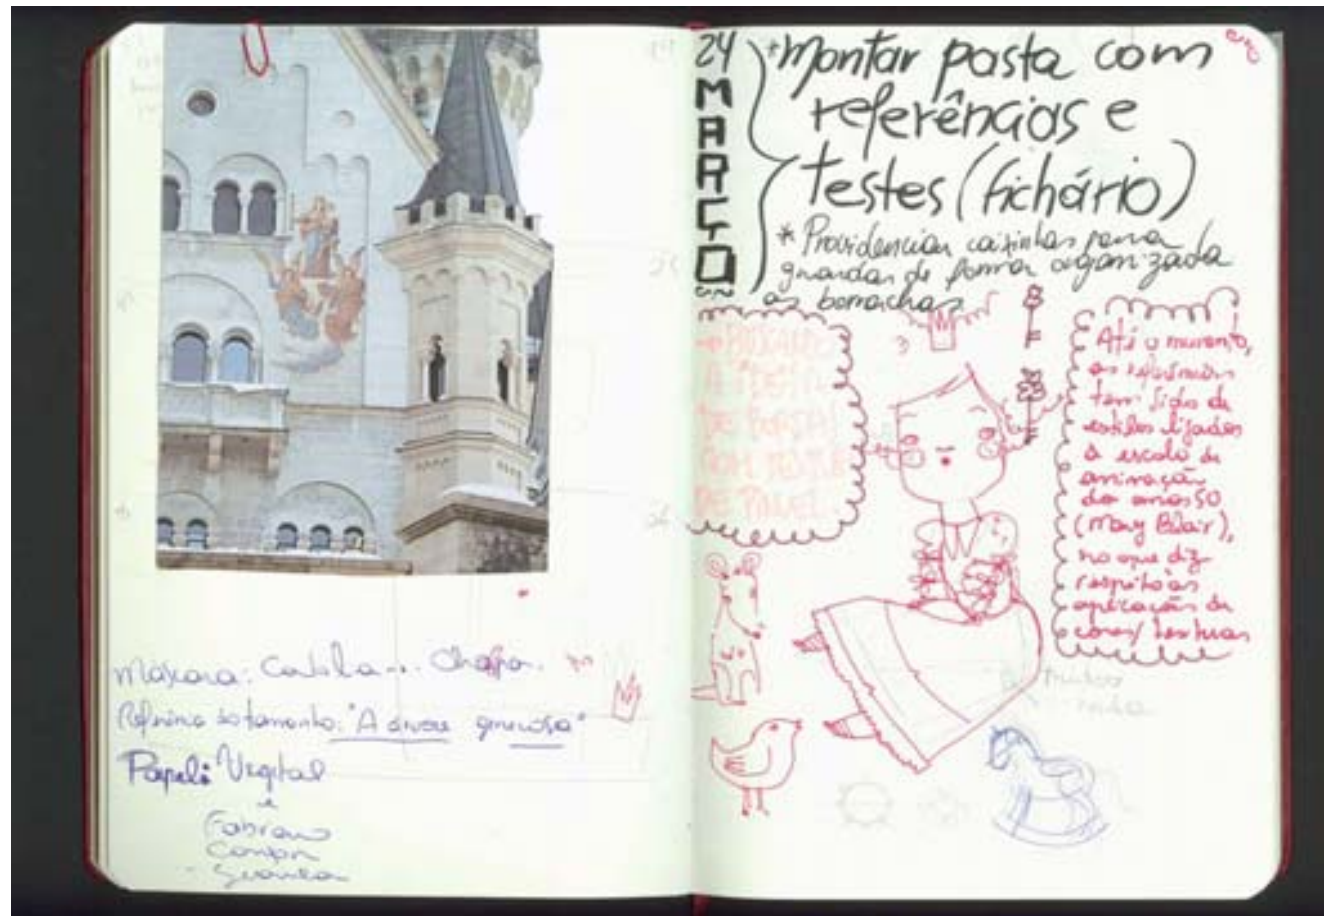 Máscara: Cartola...
Referência tratamento: "A árvore generosa"
Papel: Vegetal
e
Fabriano
Canson
24
MARÇO
*Montar pasta com
referências e
testes (fichário)
* Providenciar caixinhas para
guardar de forma organizada
as borrachas
DE PAPEL
Até o momento,
as referências
tem sido de
estilos ligados
à escola de
animação
dos anos 50
(Mary Blair),
no que diz
respeito às
aplicação de
cores/texturas